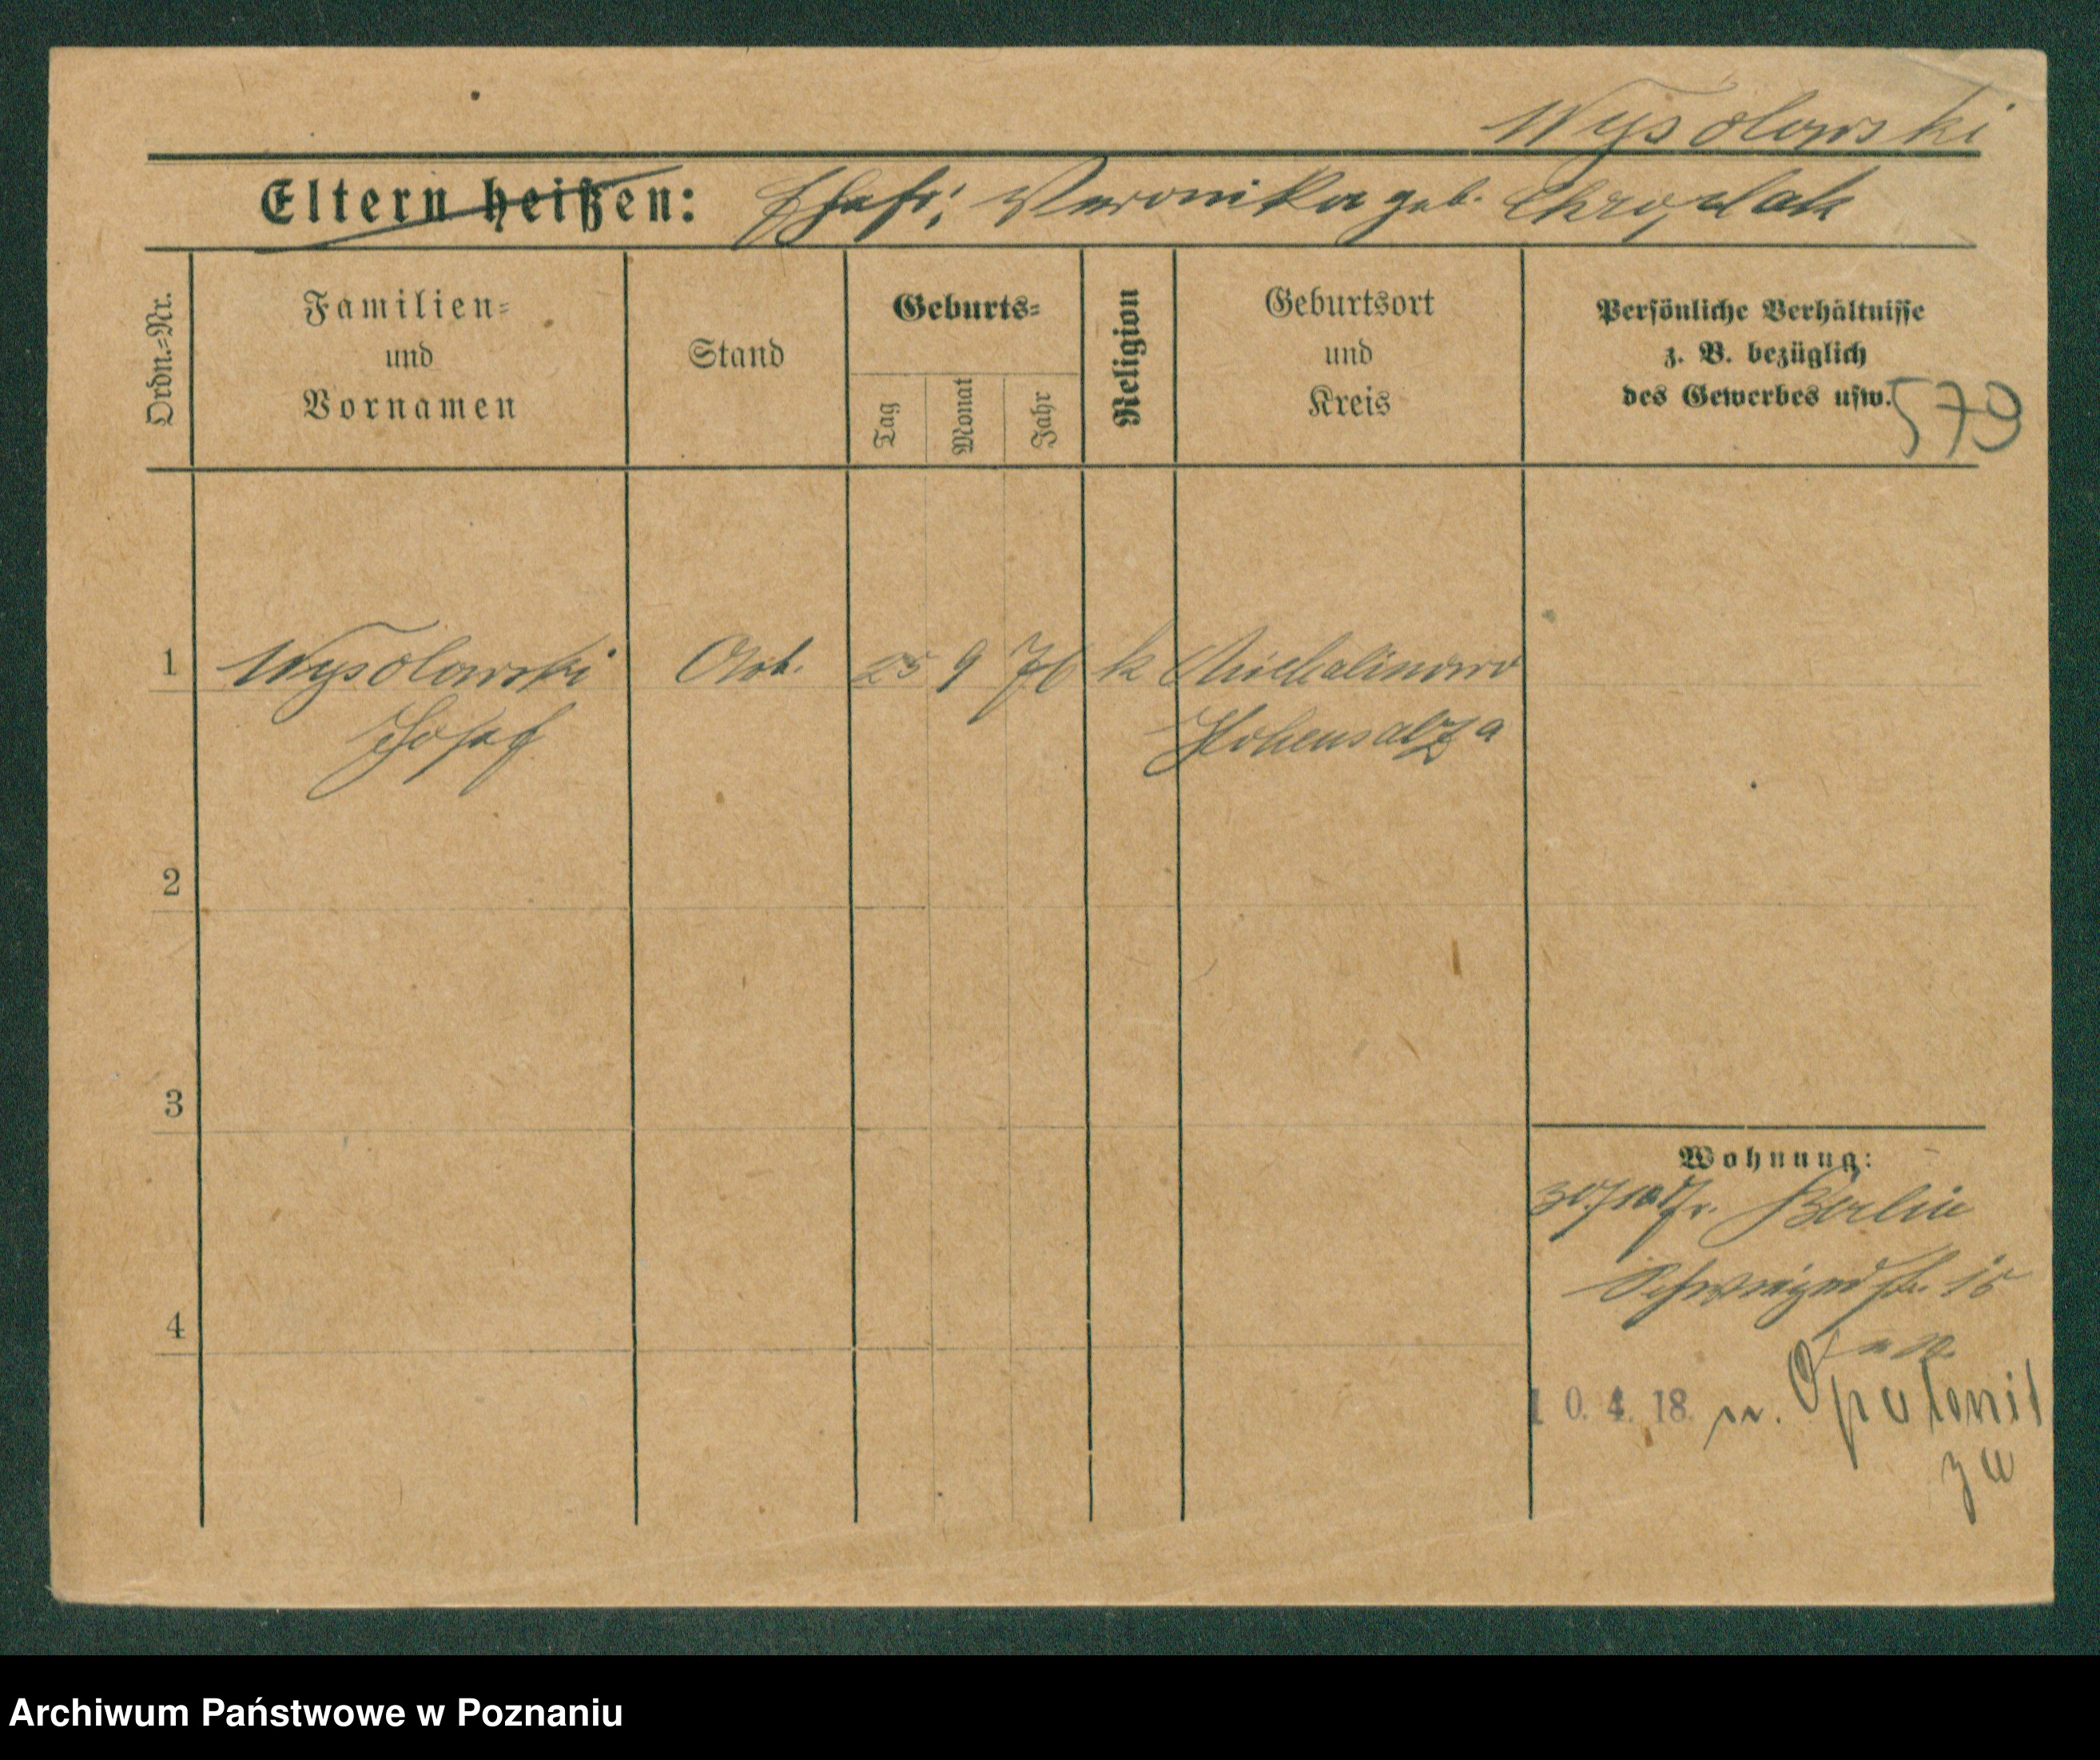 Wysolowski
Eltern heißen: Ehefr: Veronika geb.
Ordn.=Nr.
Familien=
und
Vornamen
Stand
Geburts=
Tag
Monat
Jahr
Religion
Geburtsort
und
Kreis
Persönliche Verhältnisse
z. B. bezüglich
des Gewerbes usw.
579
1 Wysolowski Arb. 25 9 76 k Michalinowo
Josef Hohensalza
2
3
4
Wohnung:
Berlin
15
10. 4. 18. n.
Archiwum Państwowe w Poznaniu